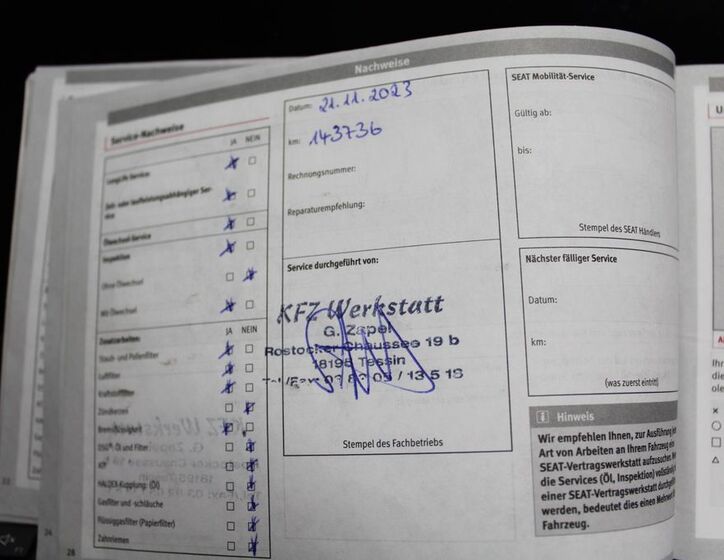 Nachweise
Service-Nachweise
JA NEIN
Longlife-Service:
Zeit- oder laufleistungsabhängiger Ser-
vice
Ölwechsel-Service
Inspektion
Ohne Ölwechsel
Mit Ölwechsel
Zusatzarbeiten: JA NEIN
Staub- und Pollenfilter
Luftfilter
Kraftstofffilter
Zündkerzen
Bremsflüssigkeit
DSG®: Öl und Filter
HALDEX-Kupplung: (Öl)
Gasfilter und -schläuche
Flüssiggasfilter (Papierfilter)
Zahnriemen
28
Datum: 21.11.2023
km: 143736
Rechnungsnummer:
Reparaturempfehlung:
Service durchgeführt von:
KFZ Werkstatt
G. Zapel
Rostocker Chaussee 19 b
18195 Tessin
/ 13 5 18
Stempel des Fachbetriebs
SEAT Mobilität-Service
Gültig ab:
bis:
Stempel des SEAT Händlers
Nächster fälliger Service
Datum:
km:
(was zuerst eintritt)
Hinweis
Wir empfehlen Ihnen, zur Ausführung
Art von Arbeiten an Ihrem Fahrzeug
SEAT-Vertragswerkstatt aufzusuchen.
die Services (Öl, Inspektion)
einer SEAT-Vertragswerkstatt
werden, bedeutet dies einen
Fahrzeug.